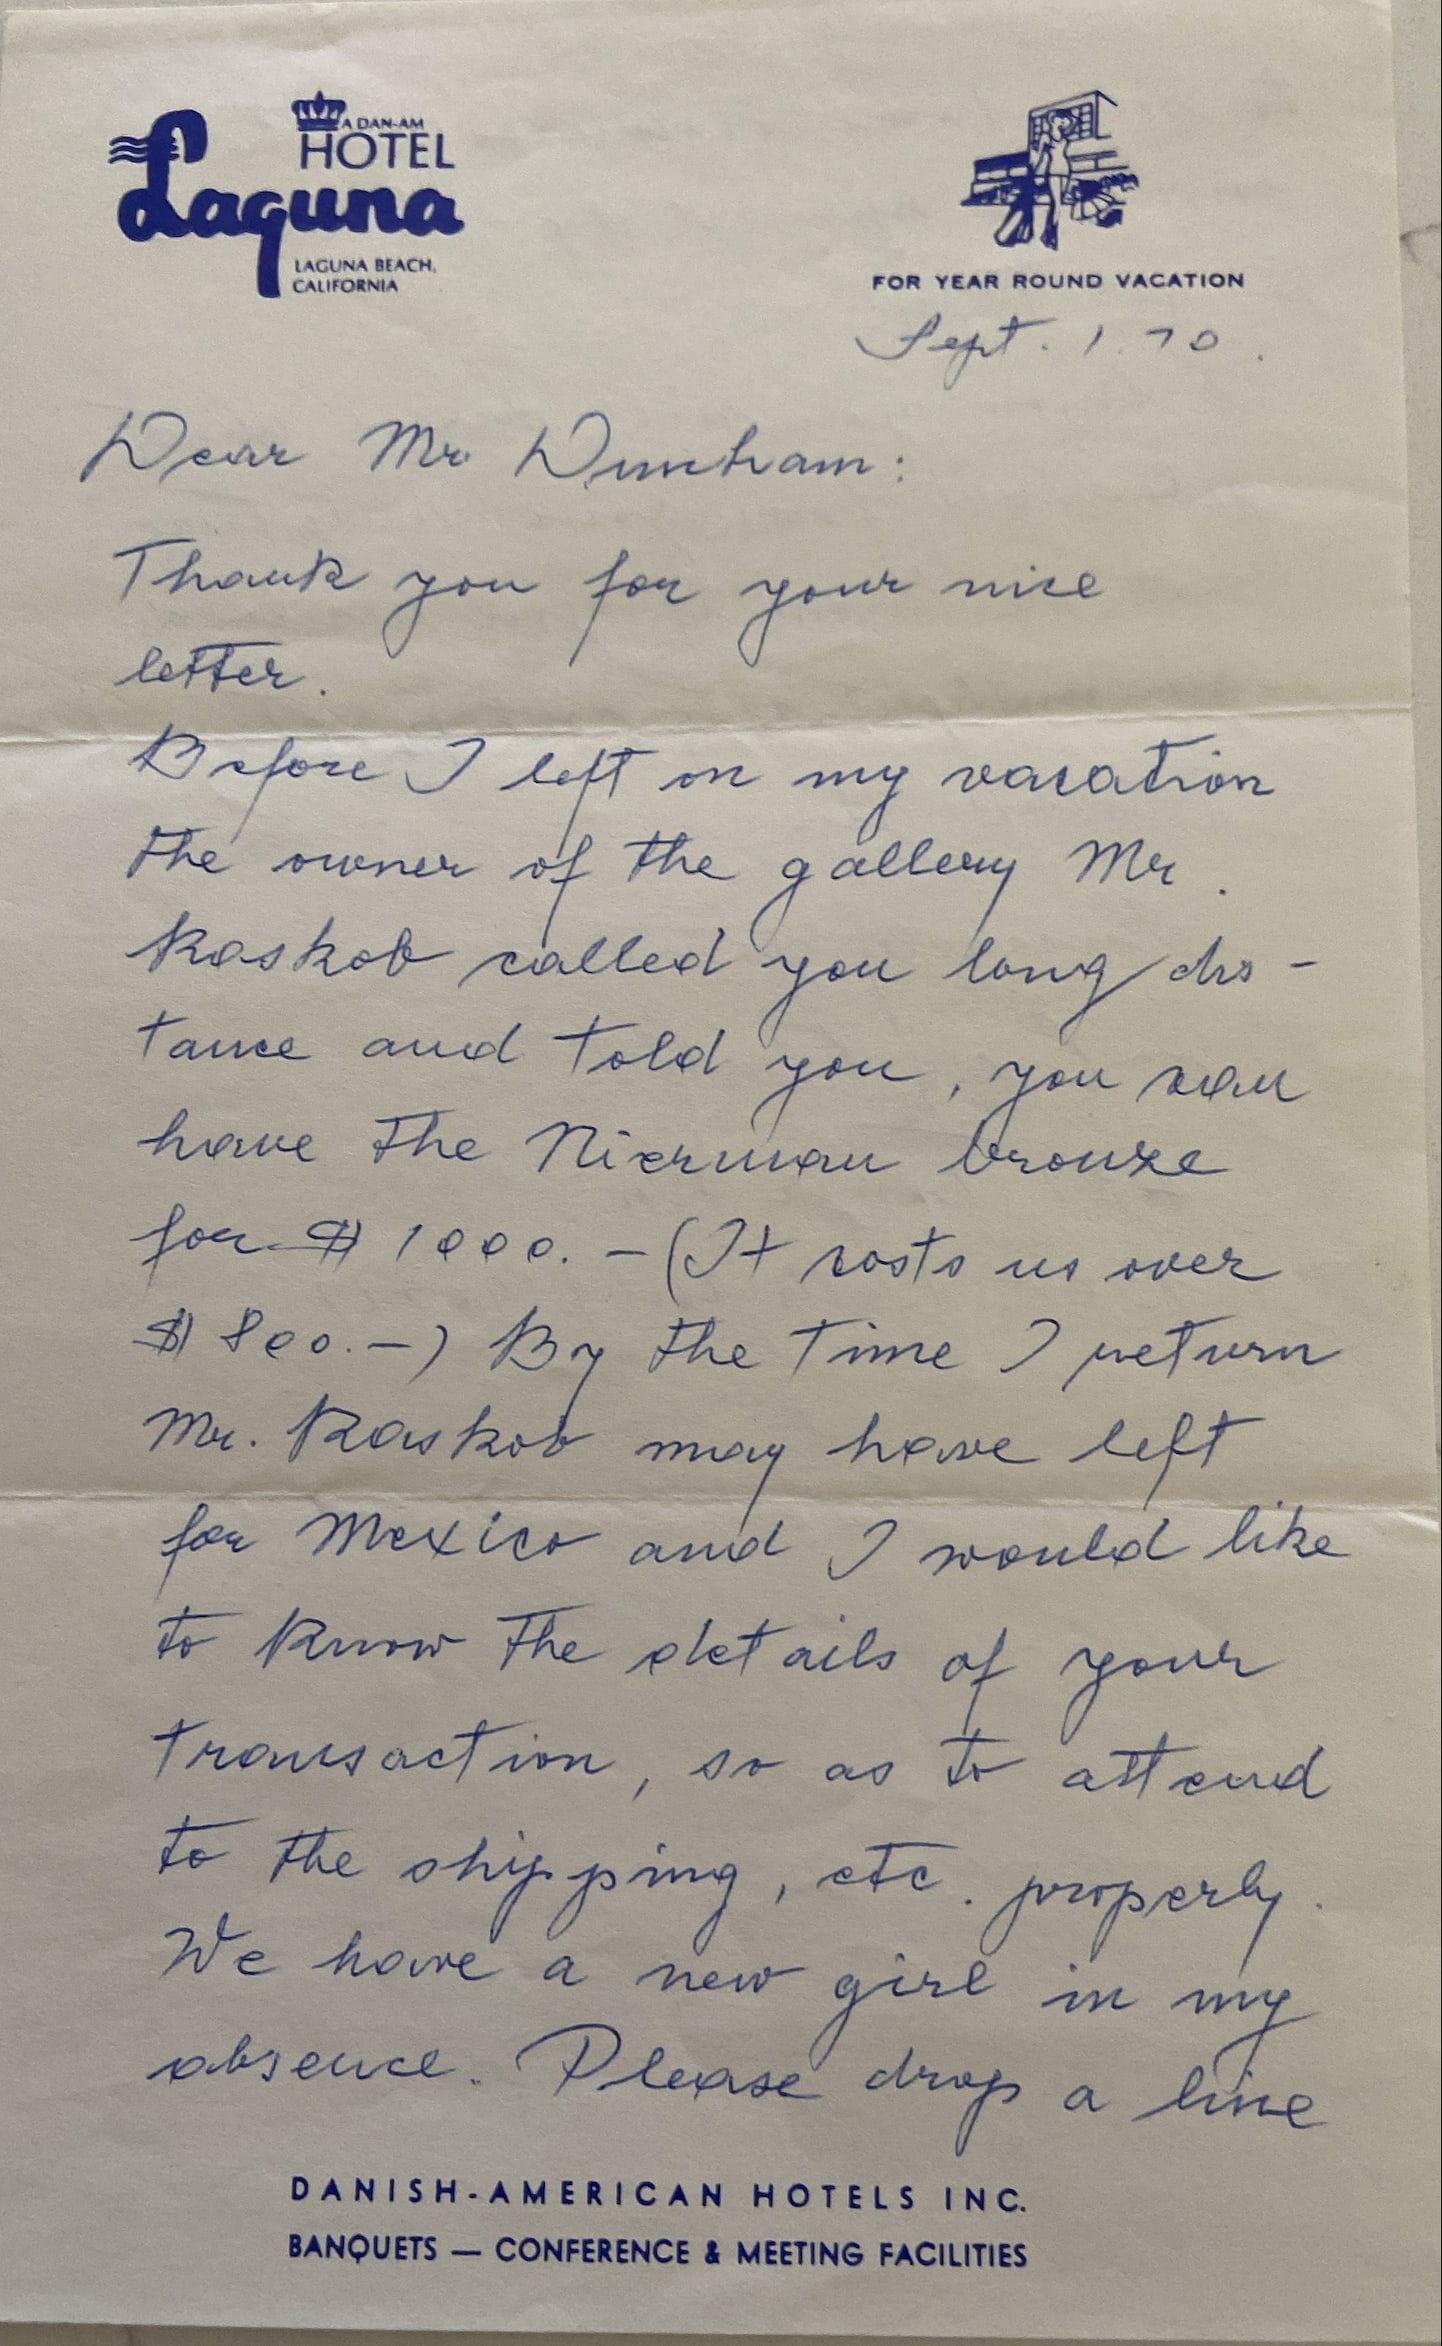 A DAN-AM
HOTEL
Laguna
LAGUNA BEACH,
CALIFORNIA
FOR YEAR ROUND VACATION
Sept. 1. 70.
Dear Mr. Dunham:
Thank you for your nice
letter.
Before I left on my vacation
the owner of the gallery Mr.
Raskob called you long dis-
tance and told you, you can
have the Nierman bronze
for $ 1000. — (It costs us over
$ 800. —) By the time I return
Mr. Raskob may have left
for Mexico and I would like
to know the details of your
transaction, so as to attend
to the shipping, etc. properly.
We have a new girl in my
absence. Please drop a line
DANISH-AMERICAN HOTELS INC.
BANQUETS — CONFERENCE & MEETING FACILITIES